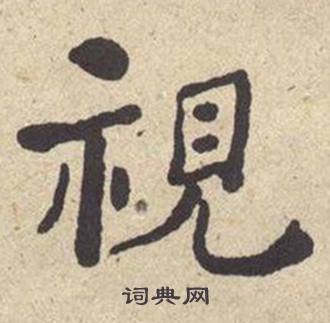 視
词典网